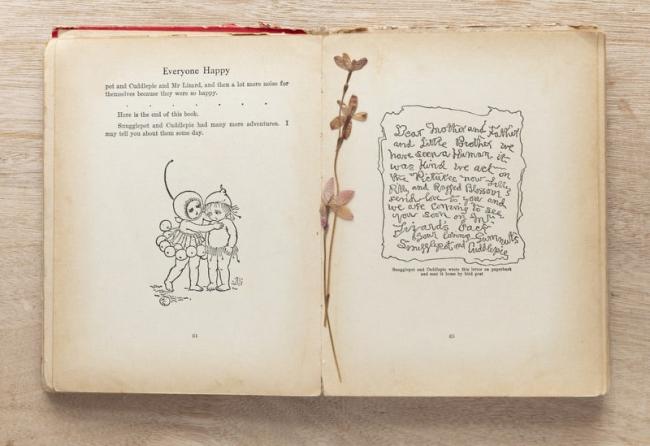 Everyone Happy
pet and Cuddlepie and Mr Lizard, and then a lot more noise for
themselves because they were so happy.
Here is the end of this book.
Snugglepot and Cuddlepie had many more adventures. I
may tell you about them some day.
64
Dear Mother and Father
and Little Brother we
have seen a Human it
was Kind we act on
the Pictures now Lilly
Pilly and Ragged Blossom's
send love to you and
we are coming to see
you soon on Mr
Lizard's back
your loving Gumnuts
Snugglepot and Cuddlepie
Snugglepot and Cuddlepie wrote this letter on paperbark
and sent it home by bird post
65